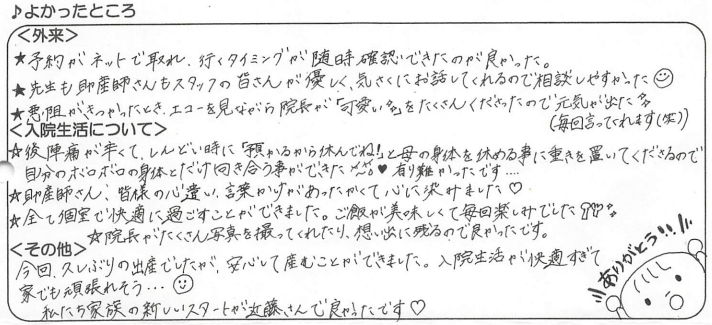 ♪よかったところ
＜外来＞
★予約がネットで取れ、行くタイミングが随時確認できたのが良かった。
★先生も助産師さんもスタッフの皆さんが優しく、気さくにお話してくれるので相談しやすかった☺
★悪阻がきつかったとき、エコーを見ながら院長が「可愛い」をたくさんくださったので元気が出た
（毎回言ってくれます（笑））
＜入院生活について＞
☆後陣痛が辛くて、しんどい時に「預かるから休んでね!」と母の身体を休める事に重きを置いてくださるので
自分のボロボロの身体とだけ向き合う事ができた♥有り難かったです....
★助産師さん、皆様の心遣い、言葉がけがあったかくて心に染みました♡
★全て個室で快適に過ごすことができました。ご飯が美味しくて毎回楽しみでした
☆院長がたくさん写真を撮ってくれたり、想い出に残るので良かったです。
＜その他＞
今回、久しぶりの出産でしたが、安心して産むことができました。入院生活が快適すぎて
家でも頑張れそう…☺
私たち家族の新しいスタートが近藤さんで良かったです♡
ありがとう!!